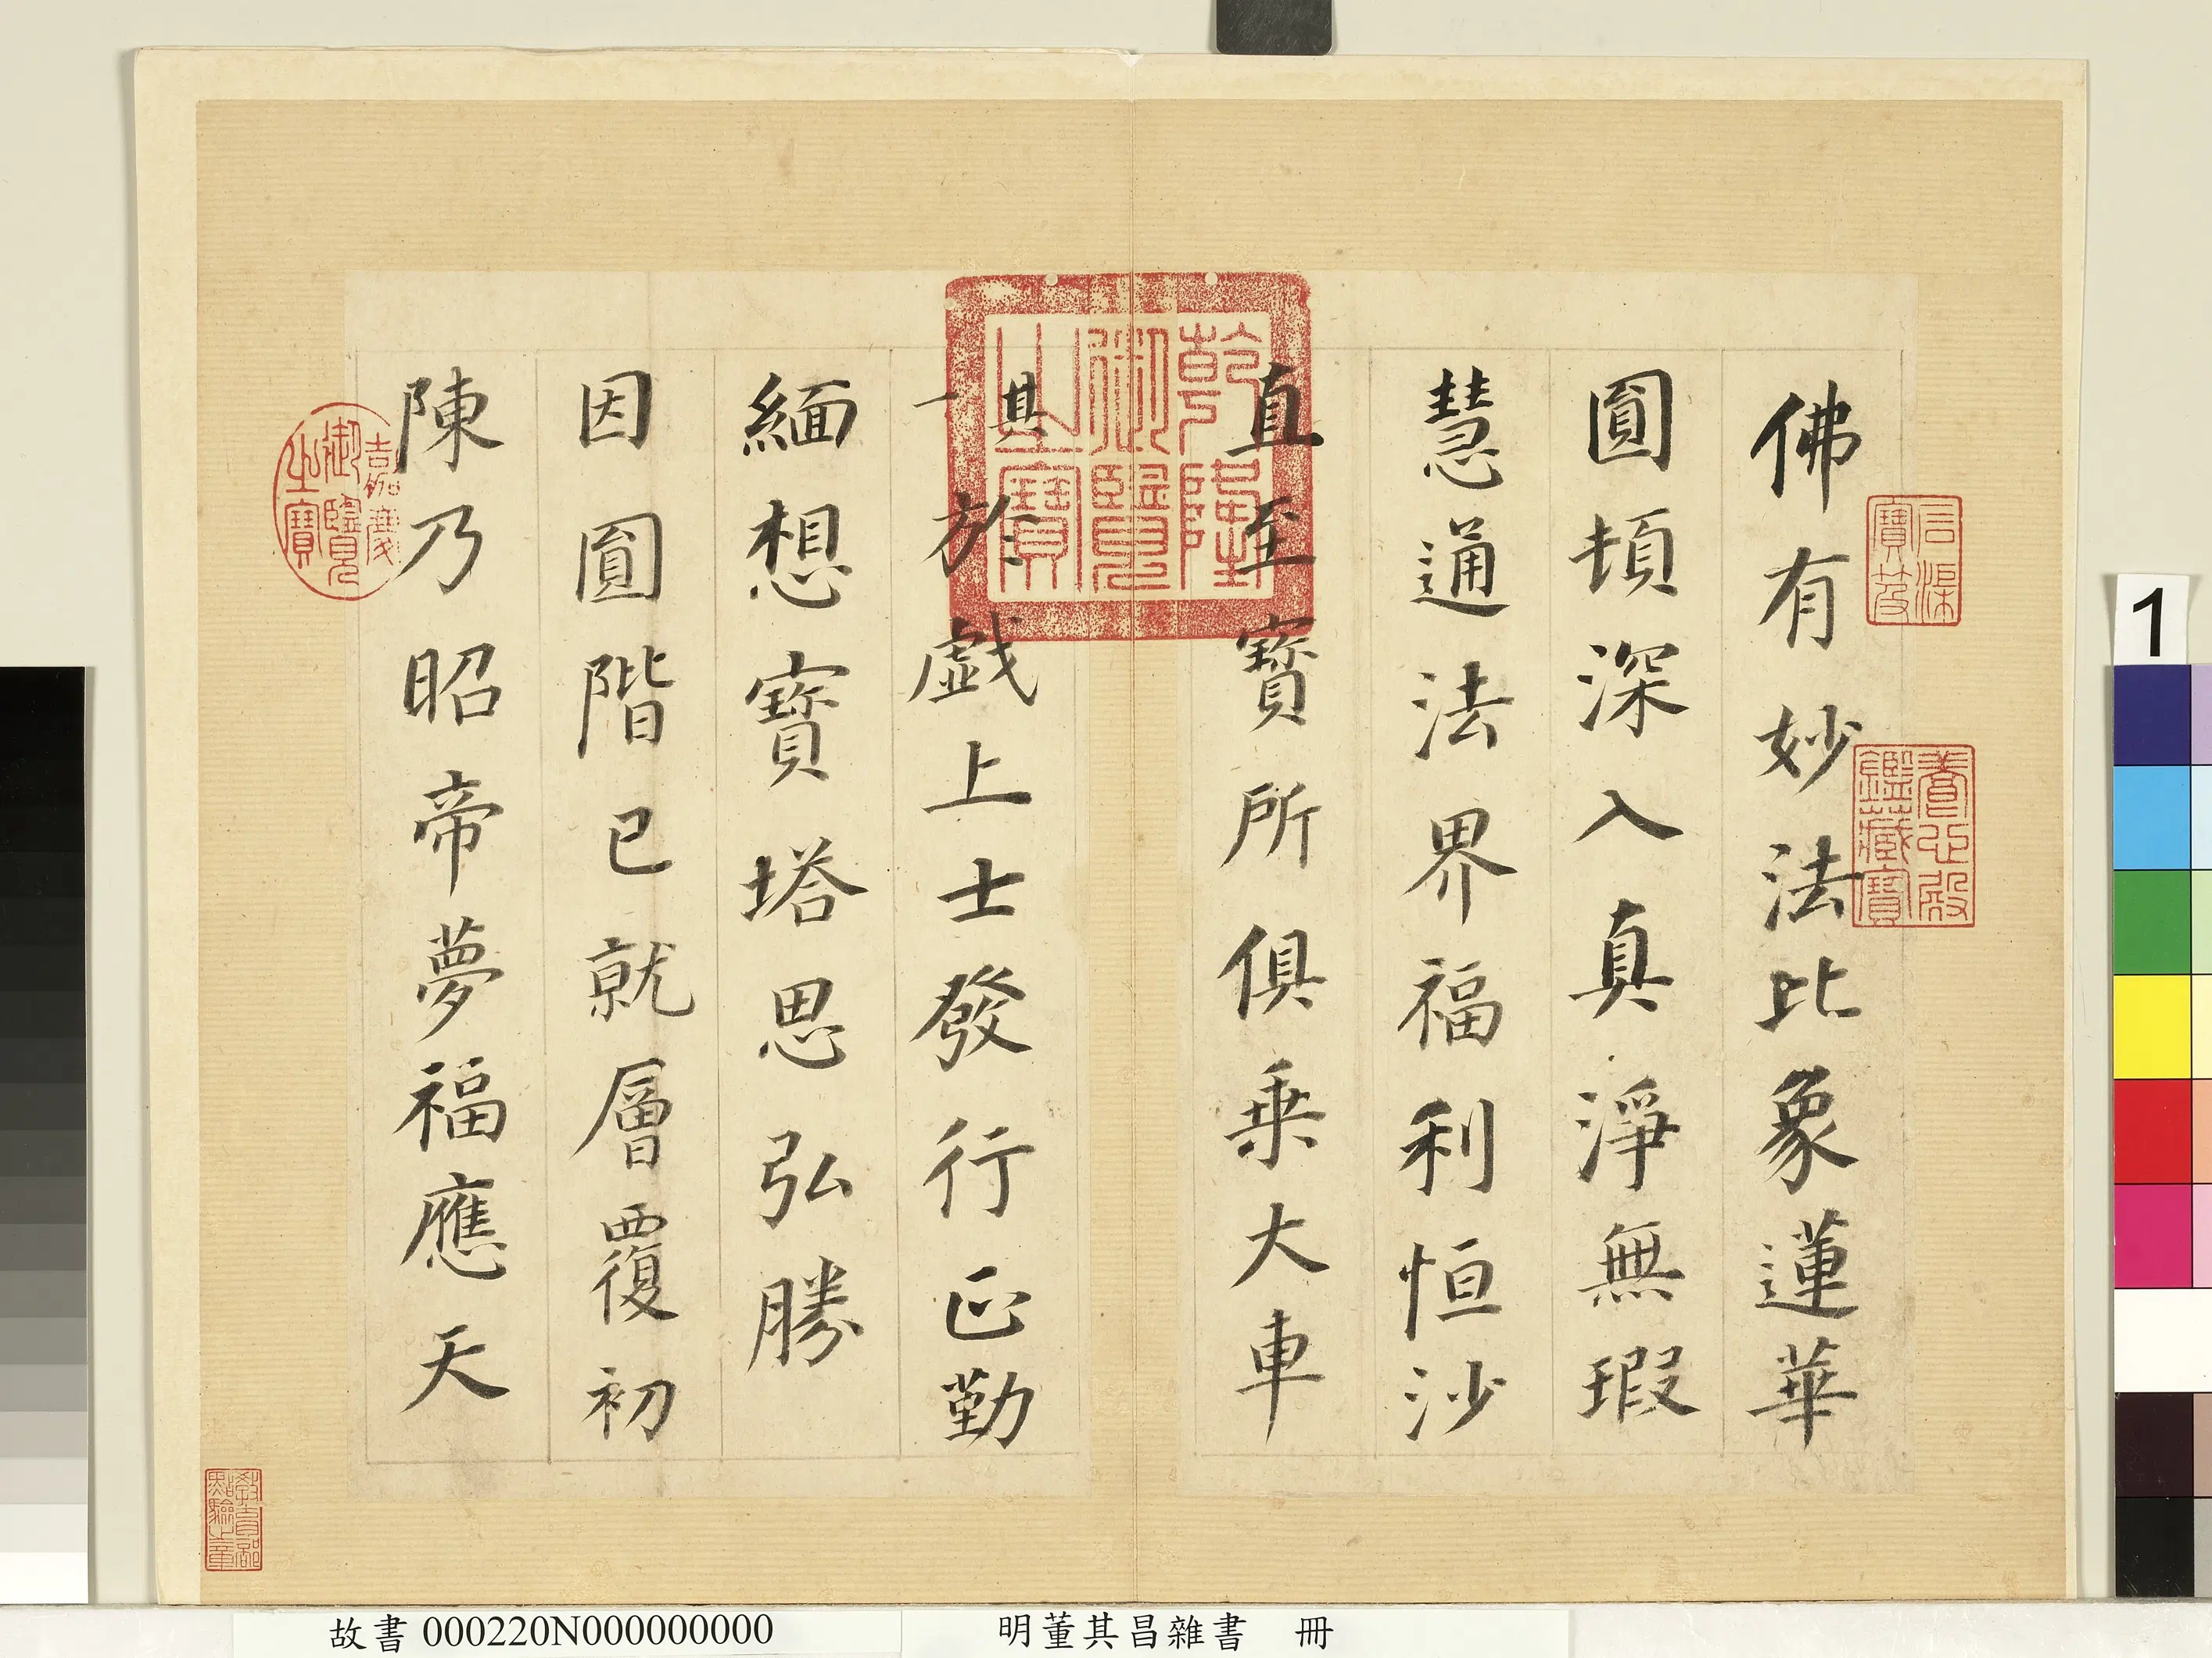 佛有妙法比象蓮華
圓頓深入真淨無瑕
慧通法界福利恒沙
直至寶所俱乘大車
其一
於戲上士發行正勤
緬想寶塔思弘勝
因圓階已就層覆初
陳乃昭帝夢福應天
乾隆御覽之寶
嘉慶御覽之寶
養心殿鑑藏寶
教育部點驗之章
1
故書000220N000000000
明董其昌雜書 冊